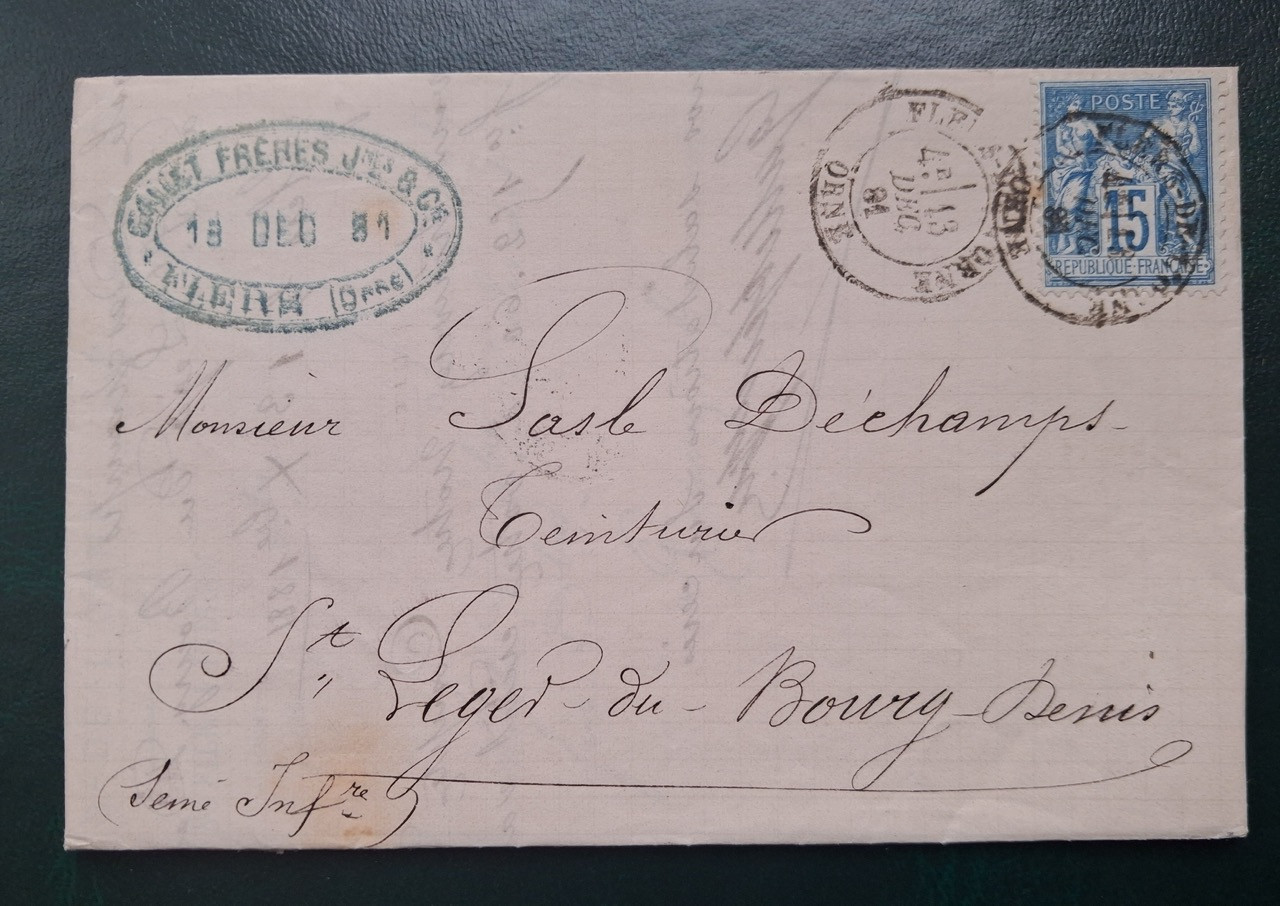 FRÈRES Jnes & Cie
13 DEC 81
FLERS (Orne)
FLERS-DE-L'ORNE
4E 13
DEC
81
ORNE
POSTE
15
REPUBLIQUE FRANÇAISE
Monsieur Sasle Déchamps-
Teinturier
St Leger-du-Bourg-Denis
Seine Infre